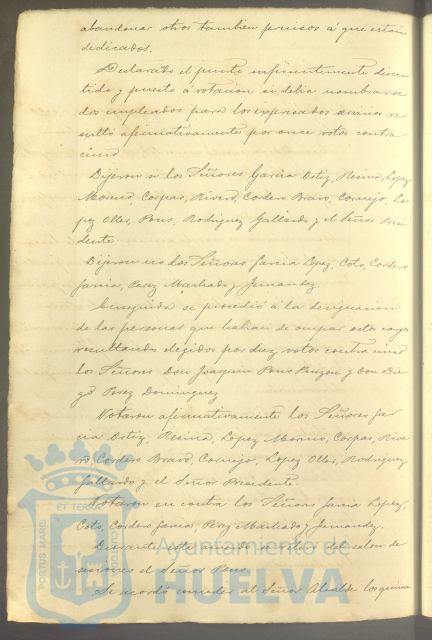 abandonar otros tambien precisos á que están
dedicados.
Declarado el punto suficientemente discu
tido y puesto á votacion si debia nombrarse
dos empleados para los expresados avisos re
sultó afirmativamente por once votos contra
cinco
Dijeron si los Señores Garcia Ortiz, Reina, Lopez
Moreno, Corpas, Rivero, Cordero Bravo, Cornejo, Lo
pez Oller, Pons, Rodriguez Gallardo y el Señor Presi
dente
Dijeron no los Señores Garcia Lopez, Coto, Cordero
Garcia, Perez Machado y Fernandez.
Enseguida se procedió á la designacion
de las personas que habian de ocupar estos cargos
resultando elegidos por diez votos contra cinco
los Señores Don Joaquin Pons Pinzon y Don Die
go Perez Dominguez
Votaron afirmativamente los Señores Gar
cia Ortiz, Reina, Lopez Moreno, Corpas, Rive
ro, Cordero Bravo, Cornejo, Lopez Oller, Rodriguez
Gallardo y el Señor Presidente
Votaron en contra los Señores Garcia Lopez,
Coto, Cordero Garcia, Perez Machado y Fernandez.
Durante este acuerdo salió del salon de
sesiones el Señor Pons.
Se acordó conceder al Señor Alcalde los quince
PORTUS MARIS ET TERRAE CUSTODIA
Ayuntamiento de
HUELVA